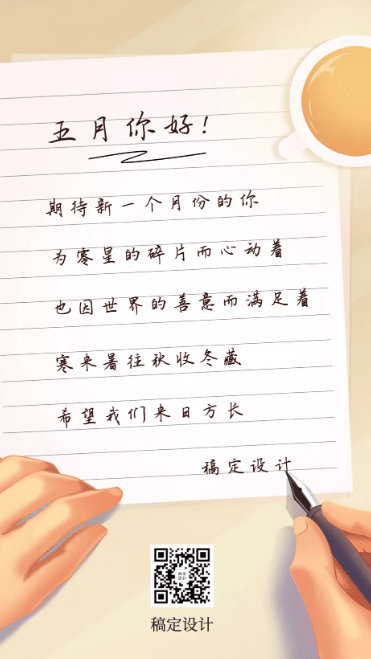 五月你好！
期待新一个月份的你
为零星的碎片而心动着
也因世界的善意而满足着
寒来暑往秋收冬藏
希望我们来日方长
稿定设计
稿定设计